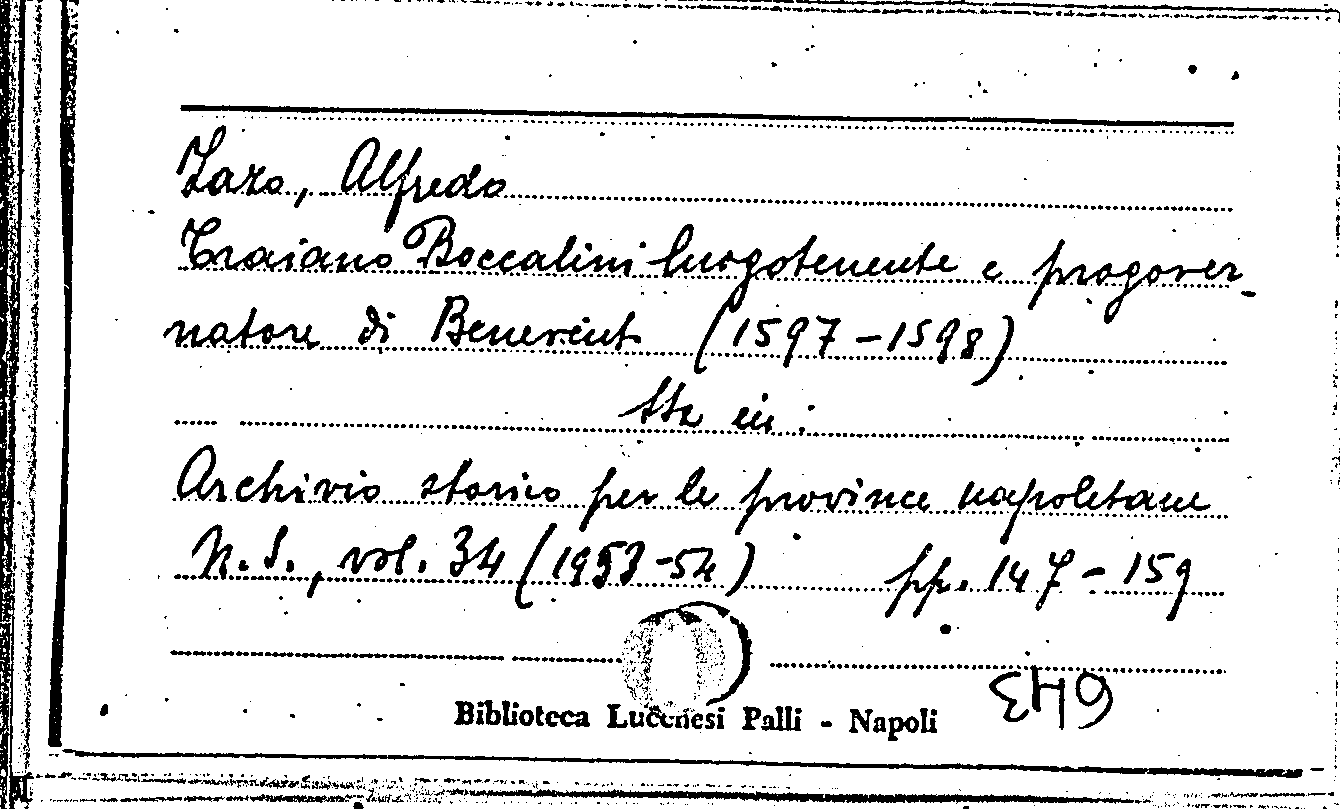 Zazo, Alfredo
Traiano Boccalini luogotenente e progover-
natore di Benevento (1597-1598)
Sta in:
Archivio storico per le province napoletane
N.S., vol. 34 (1953-54) pp. 147-159
Biblioteca Lucchesi Palli - Napoli